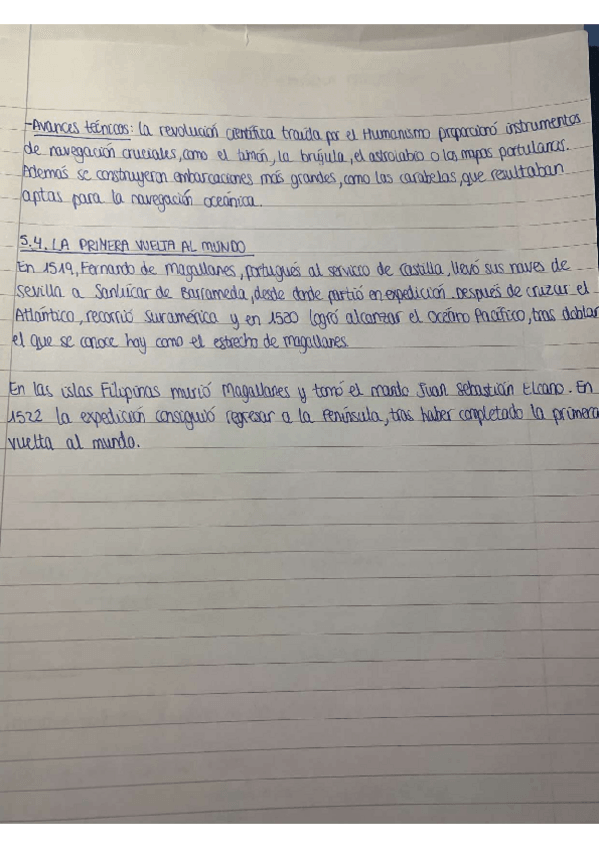 -Avances técnicos: la revolución científica traída por el Humanismo proporcionó instrumentos
de navegación cruciales, como el timón, la brújula, el astrolabio o los mapas portulanos.
Además se construyeron embarcaciones más grandes, como las carabelas, que resultaban
aptas para la navegación oceánica.
5.4. LA PRIMERA VUELTA AL MUNDO
En 1519, Fernando de Magallanes, portugués al servicio de Castilla, llevó sus naves de
Sevilla a Sanlúcar de Barrameda, desde donde partió en expedición. Después de cruzar el
Atlántico, recorrió Suramérica y en 1520 logró alcanzar el Océano Pacífico, tras doblar
el que se conoce hoy como el estrecho de Magallanes.
En las islas Filipinas murió Magallanes y tomó el mando Juan Sebastián Elcano. En
1522 la expedición consiguió regresar a la Península, tras haber completado la primera
vuelta al mundo.